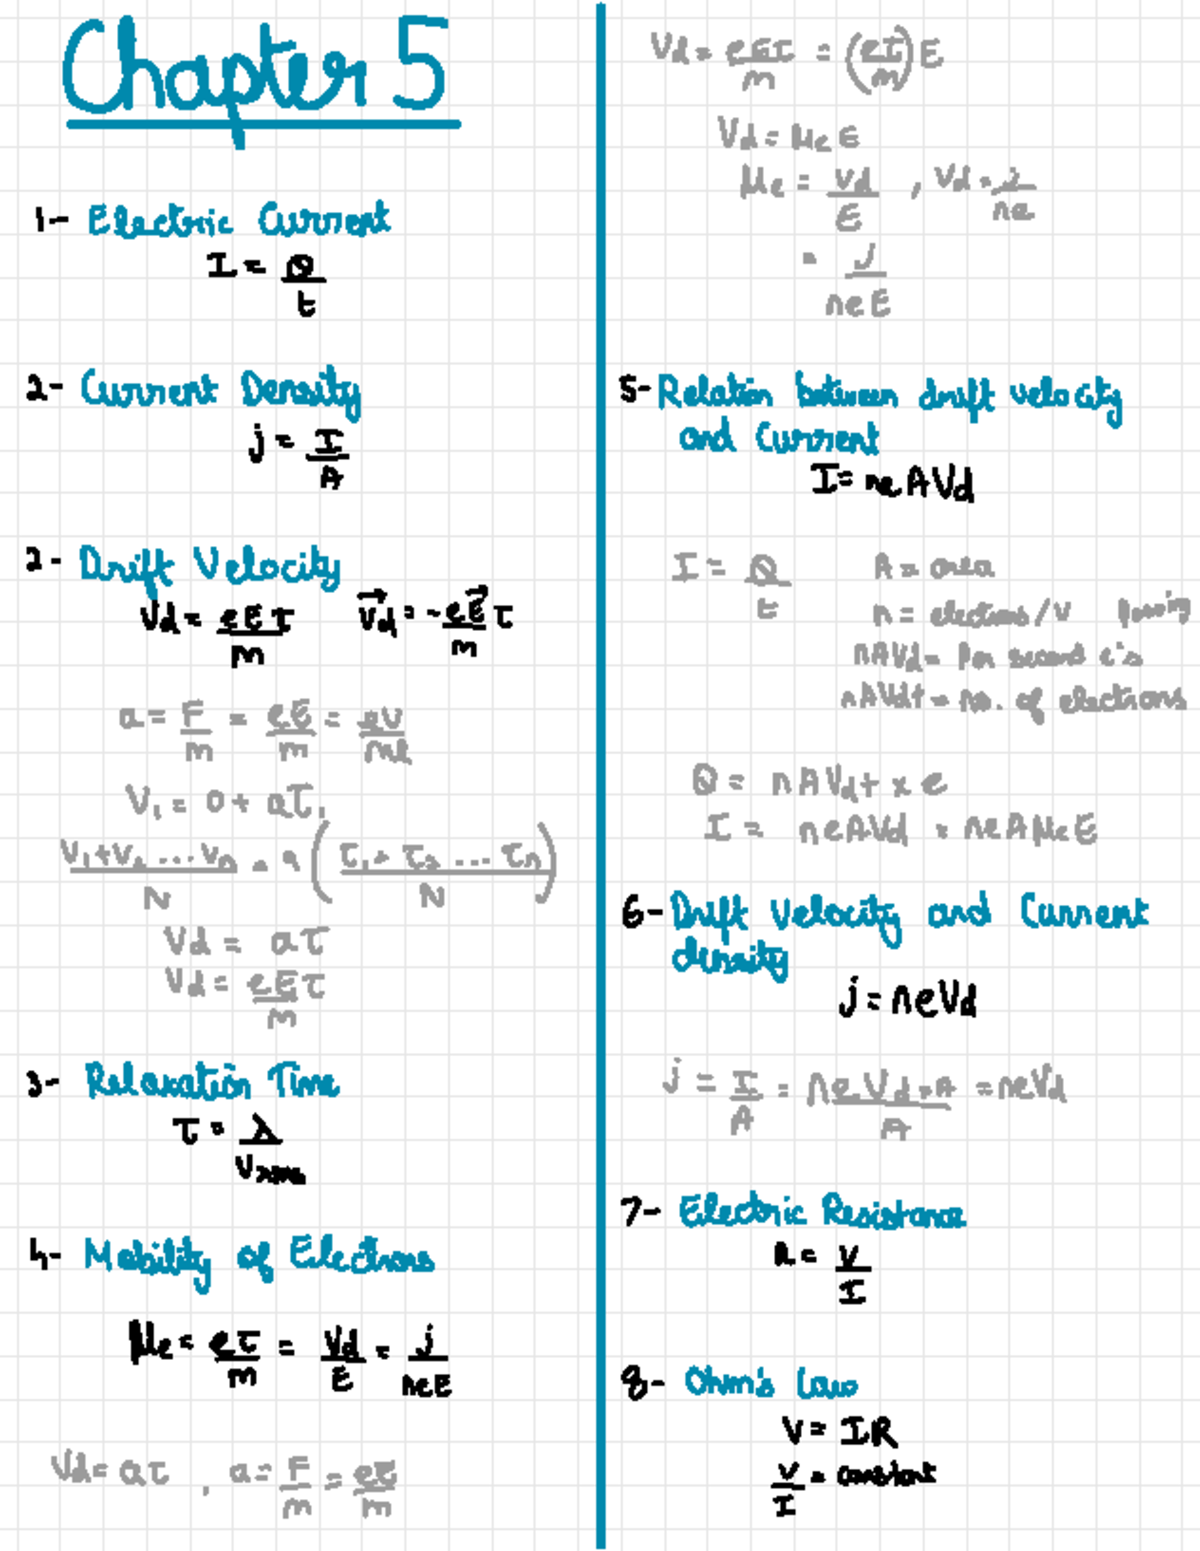 Chapter 5
1- Electric Current
I = Q/t
2- Current Density
j = I/A
2- Drift Velocity
Vd = eEτ/m    V⃗d = -eE⃗/m τ
a = F/m = eE/m = eV/ml
V₁ = 0 + aτ₁
V₁+V₂...Vn/N = a(τ₁+τ₂...τn/N)
Vd = aτ
Vd = eEτ/m
3- Relaxation Time
τ = λ/Vrms
4- Mobility of Electrons
μe = eτ/m = Vd/E = j/neE
Vd = aτ , a = F/m = eE/m
Vd = eEτ/m = (eτ/m)E
Vd = μe E
μe = Vd/E , Vd = j/ne
= J/neE
5- Relation between drift velocity
and Current
I = neAVd
I = Q/t
A = area
n = electrons/V passing
nAVd = Per second e's
nAVdt = no. of electrons
Q = nAVdt x e
I = neAVd = neAμeE
6- Drift Velocity and Current
density
j = neVd
j = I/A = ne.Vd.A/A = neVd
7- Electric Resistance
R = V/I
8- Ohm's Law
V = IR
V/I = constant